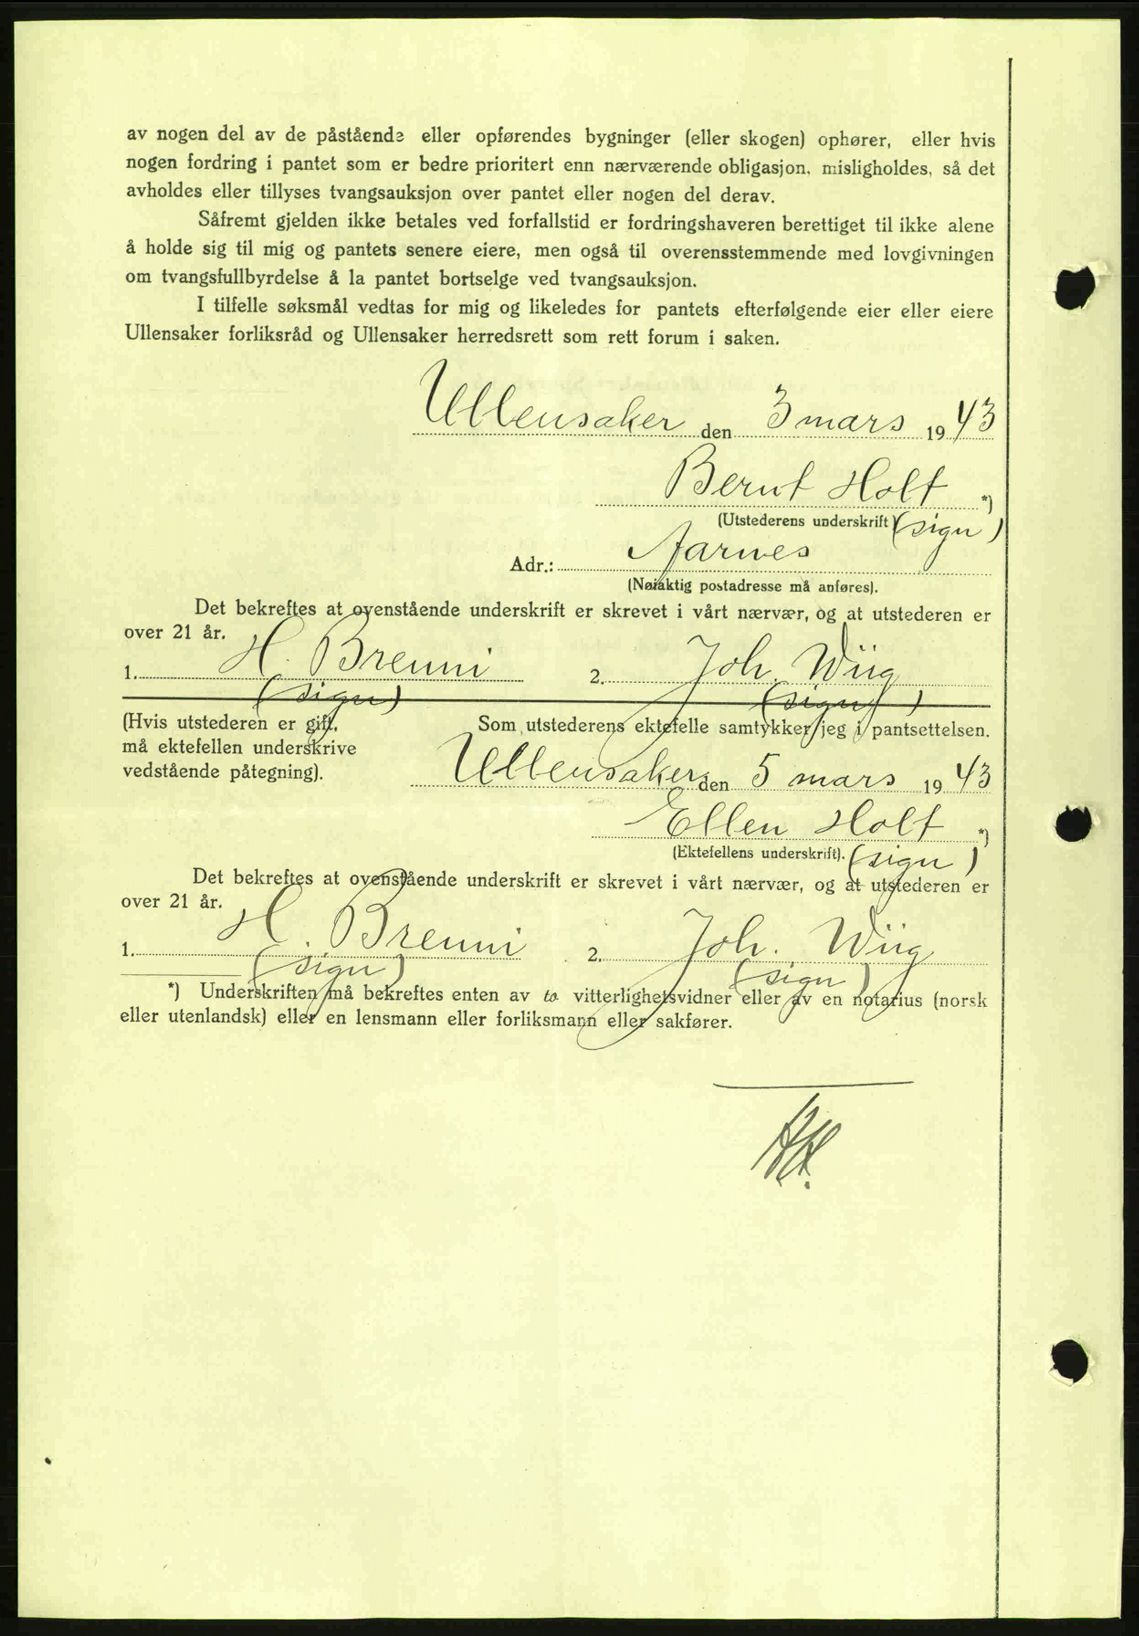 av nogen del av de påstående eller opførendes bygninger (eller skogen) ophører, eller hvis
nogen fordring i pantet som er bedre prioritert enn nærværende obligasjon, misligholdes, så det
avholdes eller tillyses tvangsauksjon over pantet eller nogen del derav.
Såfremt gjelden ikke betales ved forfallstid er fordringshaveren berettiget til ikke alene
å holde sig til mig og pantets senere eiere, men også til overensstemmende med lovgivningen
om tvangsfullbyrdelse å la pantet bortselge ved tvangsauksjon.
I tilfelle søksmål vedtas for mig og likeledes for pantets efterfølgende eier eller eiere
Ullensaker forliksråd og Ullensaker herredsrett som rett forum i saken.
Ullensaker den 3 mars 1943
Bernt Holt *)
(Utstederens underskrift) (sign)
Adr.: Aarnes
(Nøiaktig postadresse må anføres).
Det bekreftes at ovenstående underskrift er skrevet i vårt nærvær, og at utstederen er
over 21 år.
1. H. Brenni 2. Joh. Wiig
(sign) (sign)
(Hvis utstederen er gift, Som utstederens ektefelle samtykker jeg i pantsettelsen.
må ektefellen underskrive
vedstående påtegning).
Ullensaker den 5 mars 1943
Ellen Holt *)
(Ektefellens underskrift). (sign)
Det bekreftes at ovenstående underskrift er skrevet i vårt nærvær, og at utstederen er
over 21 år.
1. H. Brenni 2. Joh. Wiig
(sign) (sign)
*) Underskriften må bekreftes enten av to vitterlighetsvidner eller av en notarius (norsk
eller utenlandsk) eller en lensmann eller forliksmann eller sakfører.